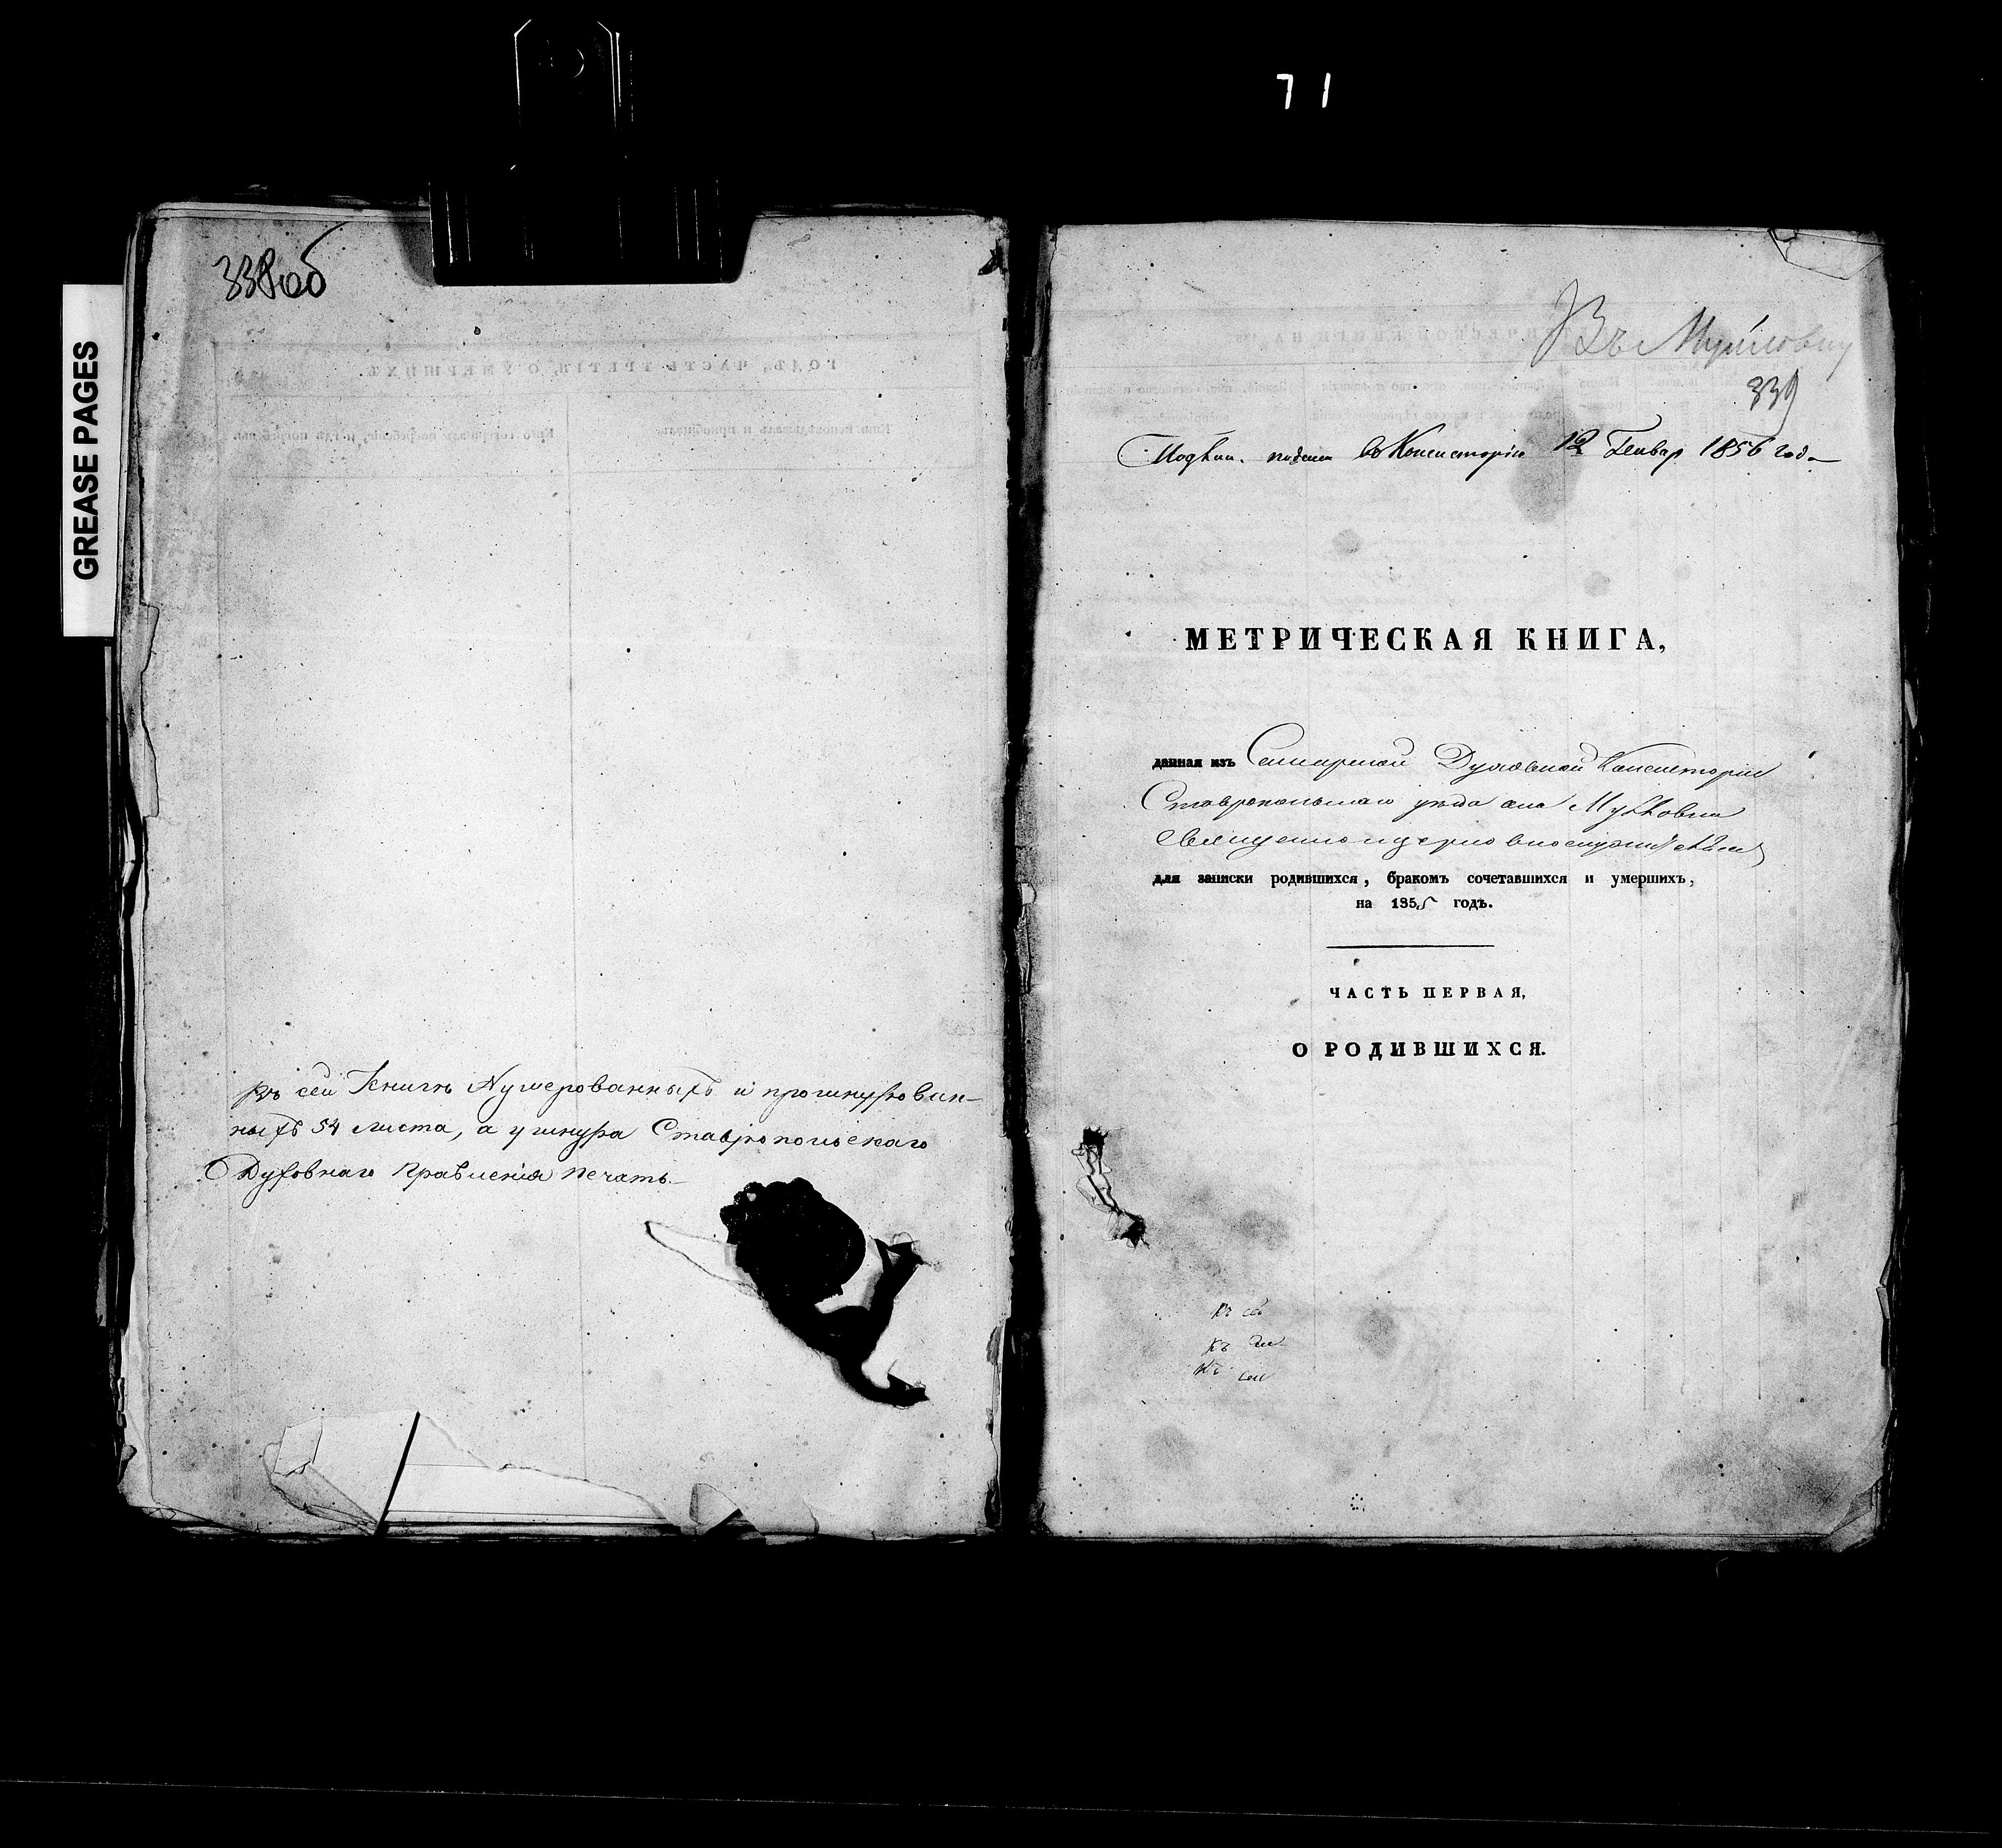 71
GREASE PAGES
338об
ГОДЪ, ЧАСТЬ ТРЕТІЯ, О УМЕРШИХЪ.
Въ сей Книгѣ Нумерованныхъ и прошнурован-
ныхъ 54 листа, а у шнура Ставропольскаго
Духовнаго Правленія печать.
Въ
339
подана въ Консисторію 12 Генвар 1856 год
МЕТРИЧЕСКАЯ КНИГА,
данная изъ Самарской Духовной Консисторіи
Ставропольскаго уѣзда села
священно церковнослужителямъ
для записки родившихся, бракомъ сочетавшихся и умершихъ,
на 1855 годъ.
ЧАСТЬ ПЕРВАЯ,
О РОДИВШИХСЯ.
Къ сей
Къ
Къ сей